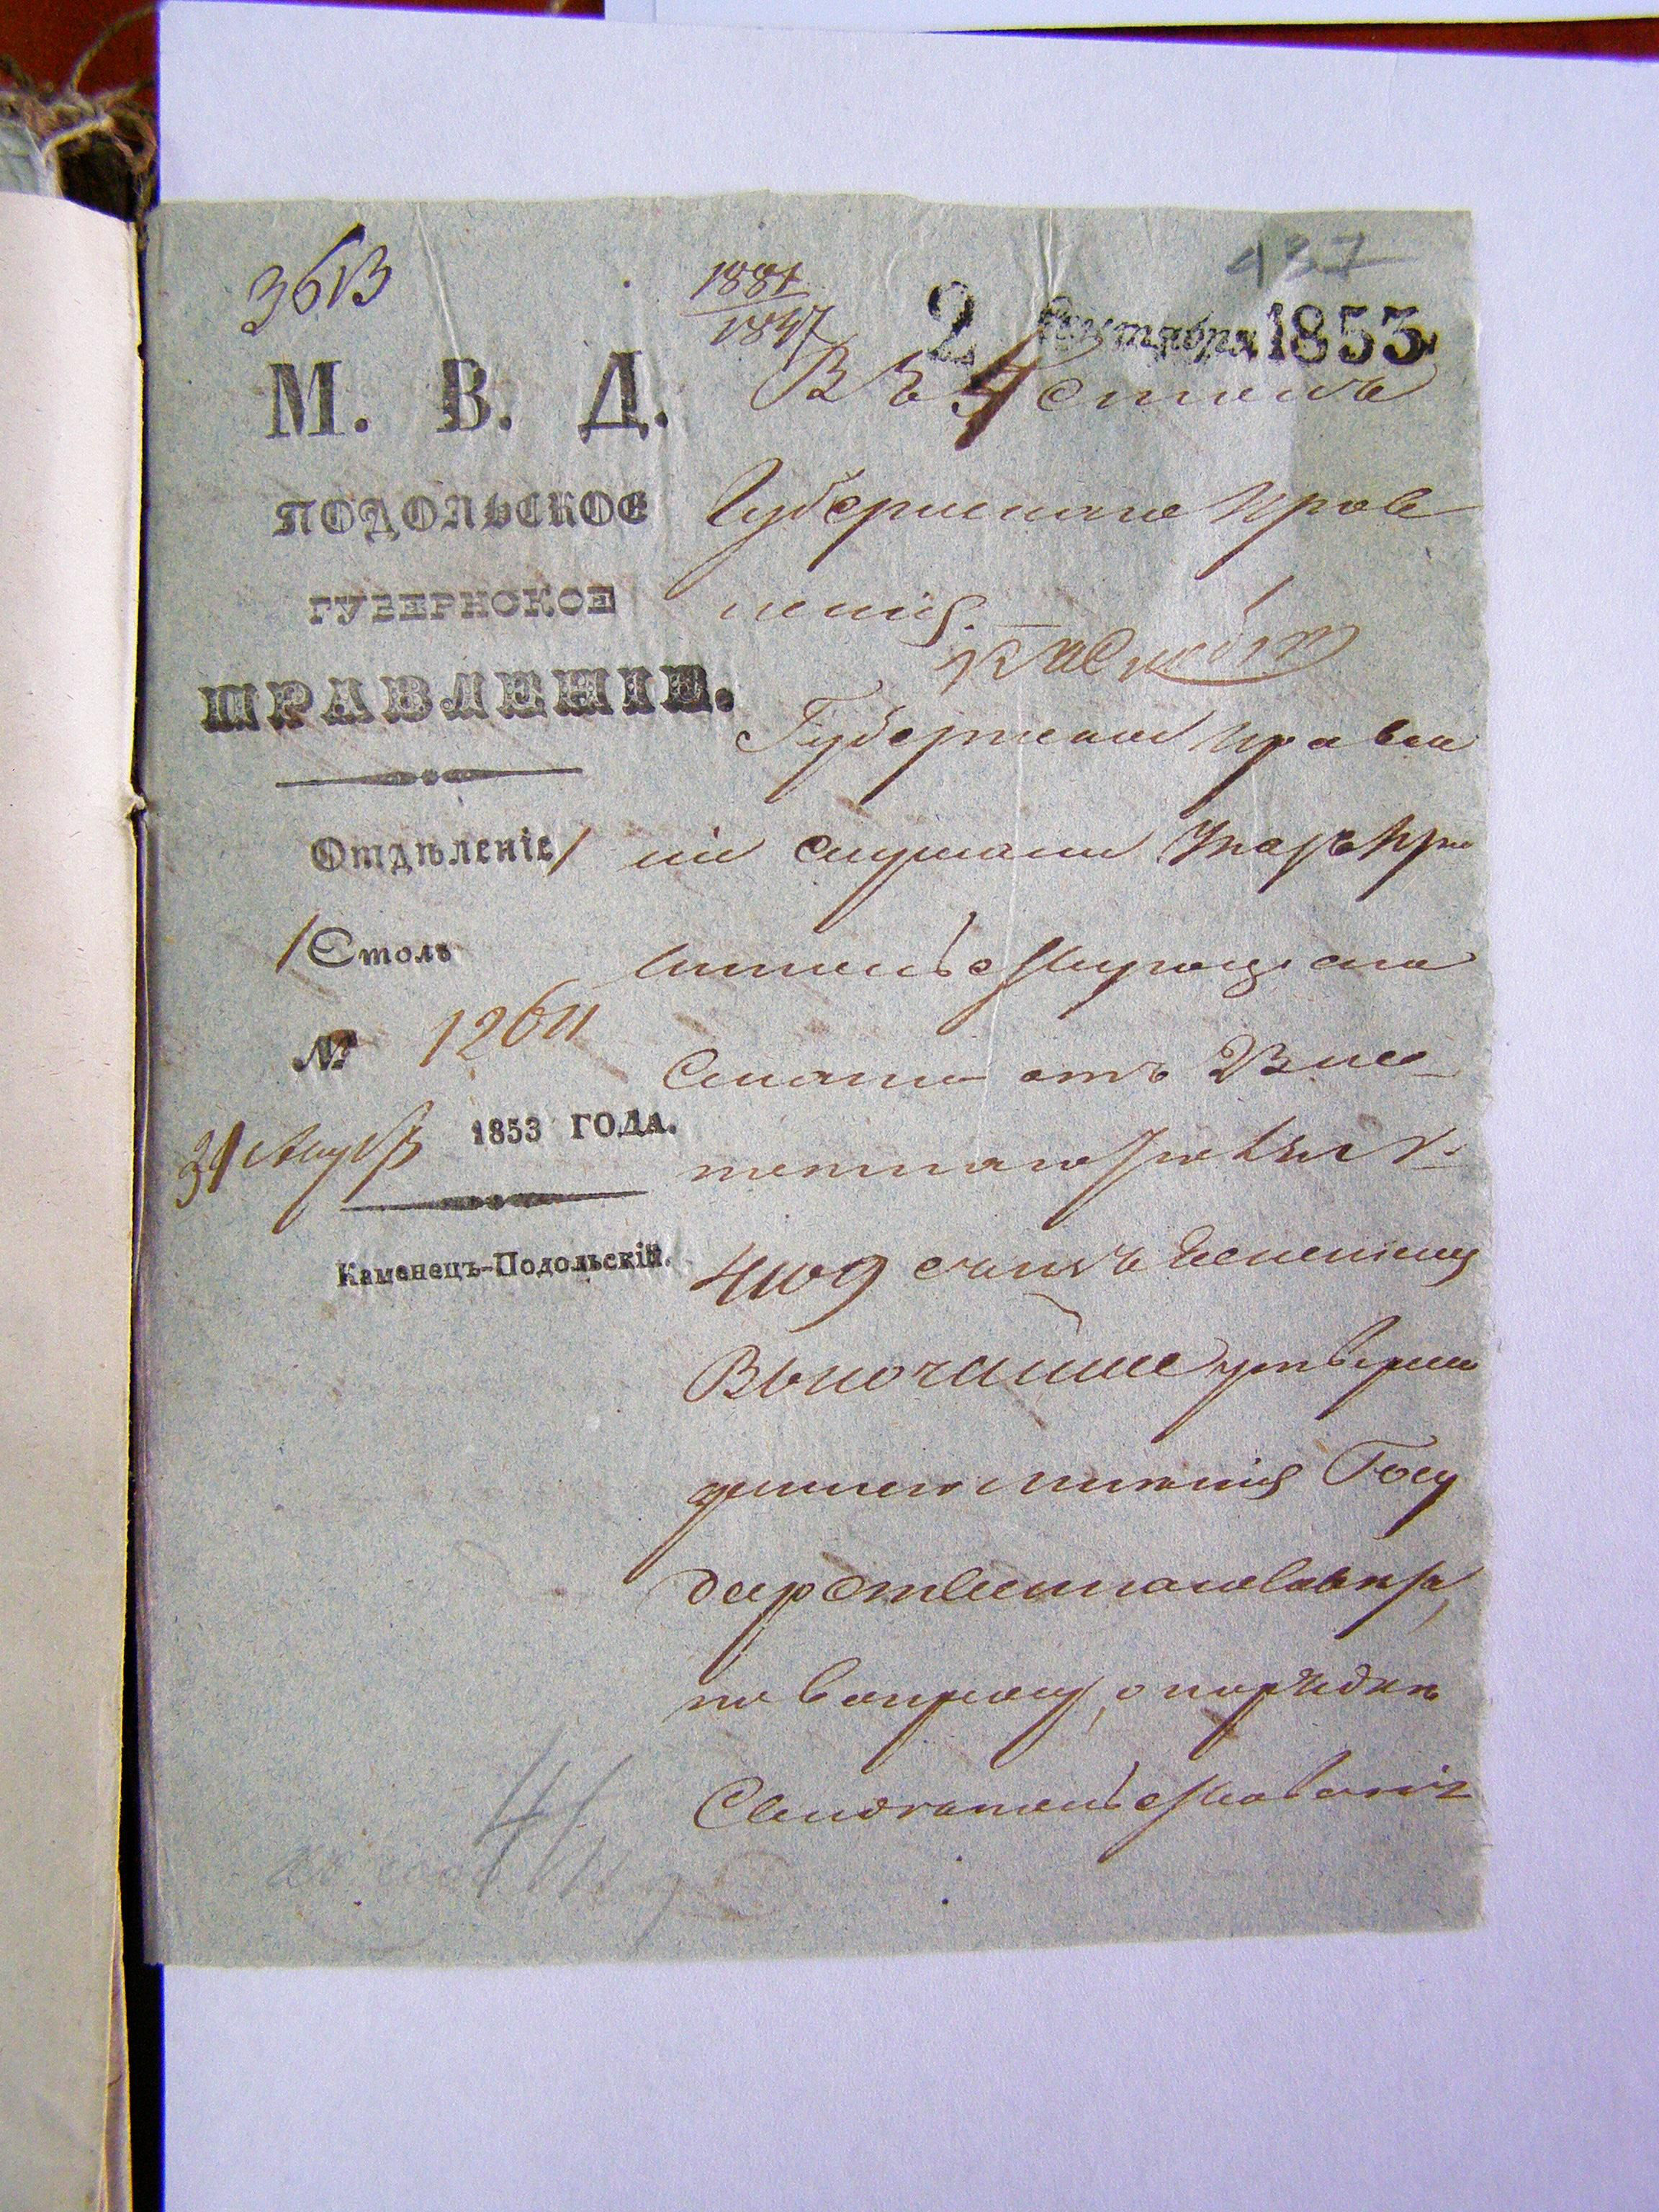 437
3613
1881
1847
2 Сентября 1853
М. В. Д.
ПОДОЛЬСКОЕ
ГУБЕРНСКОЕ
ПРАВЛЕНІЕ.
Отдѣленіе 1
1 Столъ
№ 12611
31 Августа 1853 ГОДА.
Каменецъ-Подольскій.
Въ 4 столъ
Губернскаго Прав
ленія.
Губернское Правле
ніе слушали Указъ Пра
вительствующаго
Сената отъ
за №
4109
Высочайше утверж
деннаго мнѣнія Госу
дарственнаго Совѣта,
по вопросу, о порядкѣ
Свидѣтельствованія